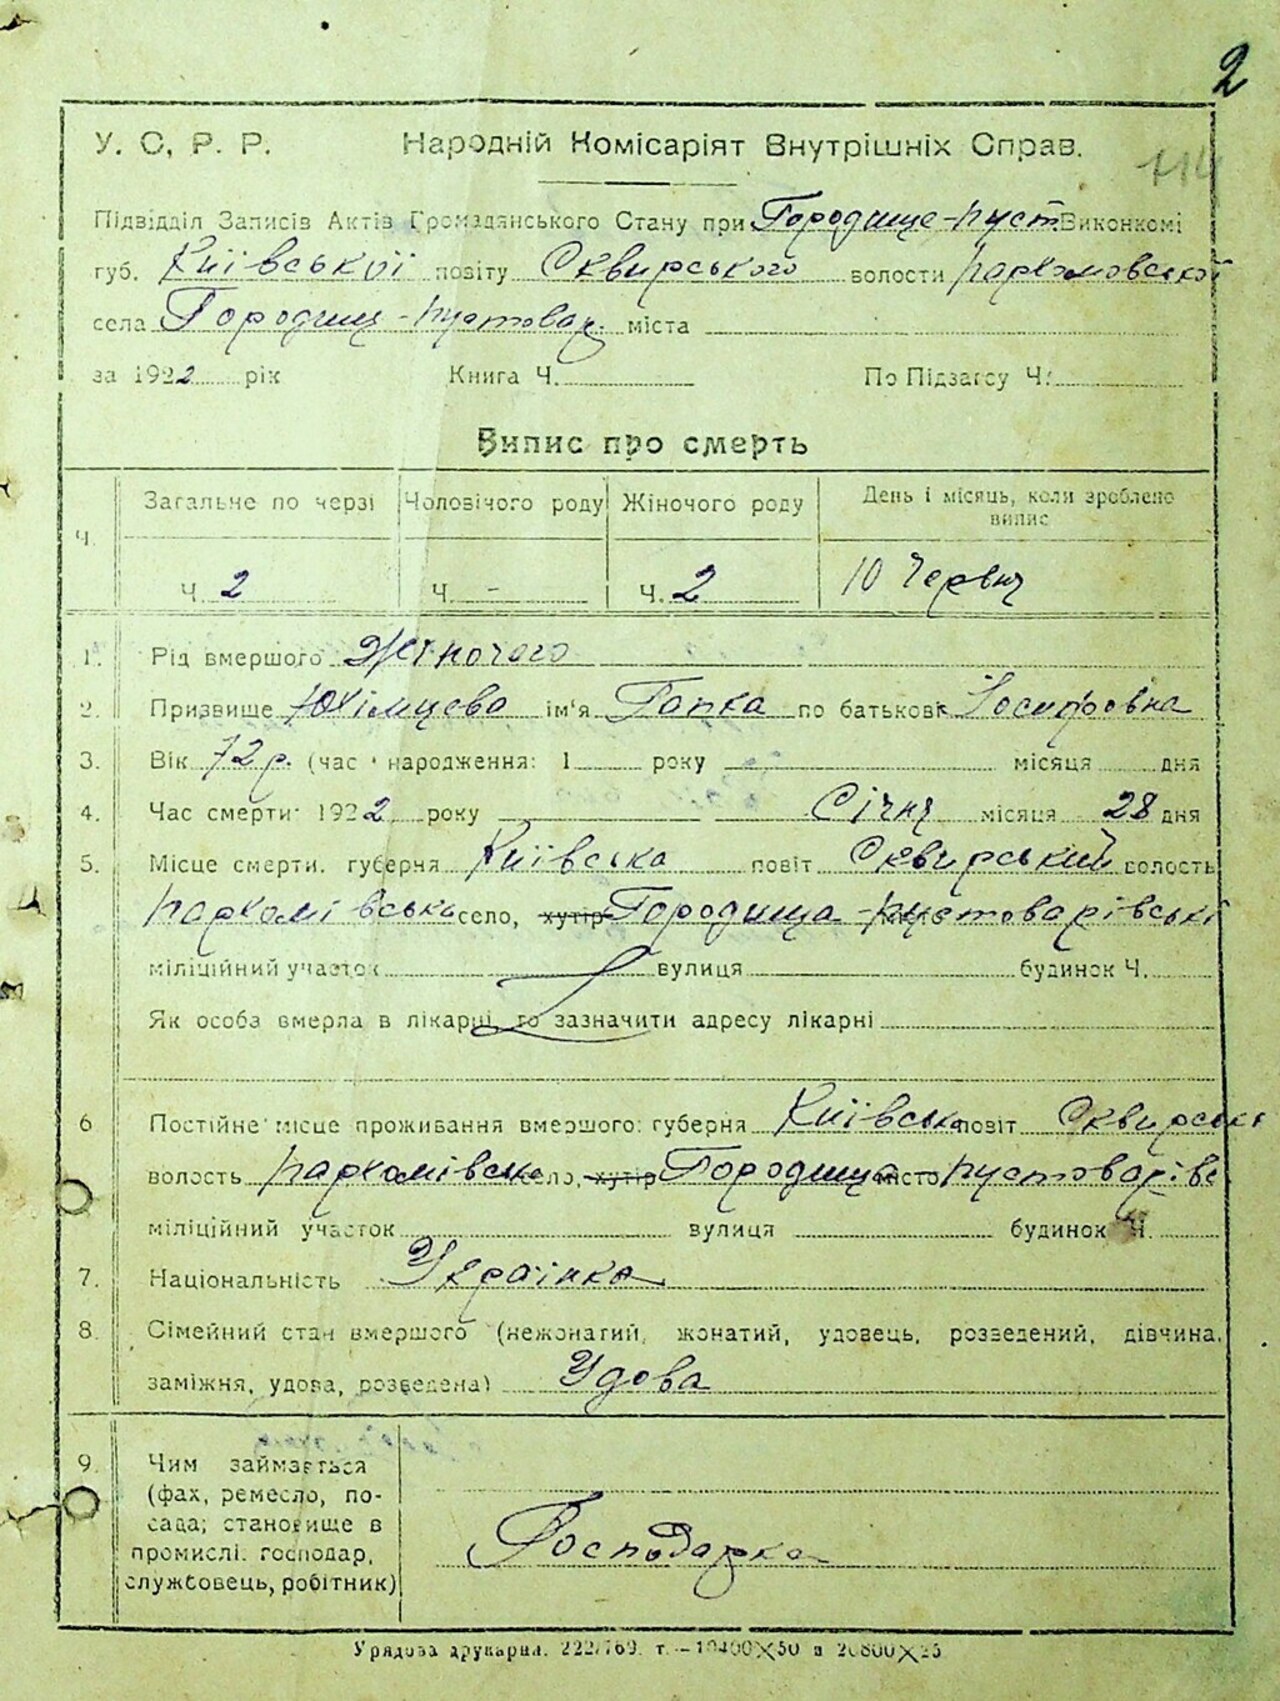 2
У. С. Р. Р. Народній Комісаріят Внутрішніх Справ.
Підвідділ Записів Актів Громадянського Стану при Городище-пуст. Виконкомі
губ. Київської повіту Сквирського волости пархомовської
села Городищ-пустовар. міста
за 1922 рік Книга Ч. По Підзагсу Ч.
Випис про смерть
Ч. Загальне по черзі Чоловічого роду Жіночого роду День і місяць, коли зроблено випис
Ч. 2 Ч. - Ч. 2 10 Червня
1. Рід вмершого Жіночого
2. Призвище Юхімцева ім'я Гапка по батькові Іосифовна
3. Вік 72 р. (час народження: 1 року місяця дня
4. Час смерти: 1922 року Січня місяця 28 дня
5. Місце смерти. губерня Київська повіт Сквирський волость
пархомівська село, хутір Городища-пустоварівські
міліційний участок вулиця будинок Ч.
Як особа вмерла в лікарні, то зазначити адресу лікарні
6 Постійне місце проживання вмершого: губерня Київська повіт Сквирські
волость пархомівська село, хутір Городища місто пустоварівс
міліційний участок вулиця будинок Ч.
7. Національність Українка
8. Сімейний стан вмершого (нежонатий, жонатий, удовець, розведений, дівчина,
заміжня, удова, розведена) Удова
9. Чим займається
(фах, ремесло, по-
сада; становище в
промислі: господар,
службовець, робітник)
Господарка
Урядова друкарня. 222/769. т.—10400×50 и 20800×25